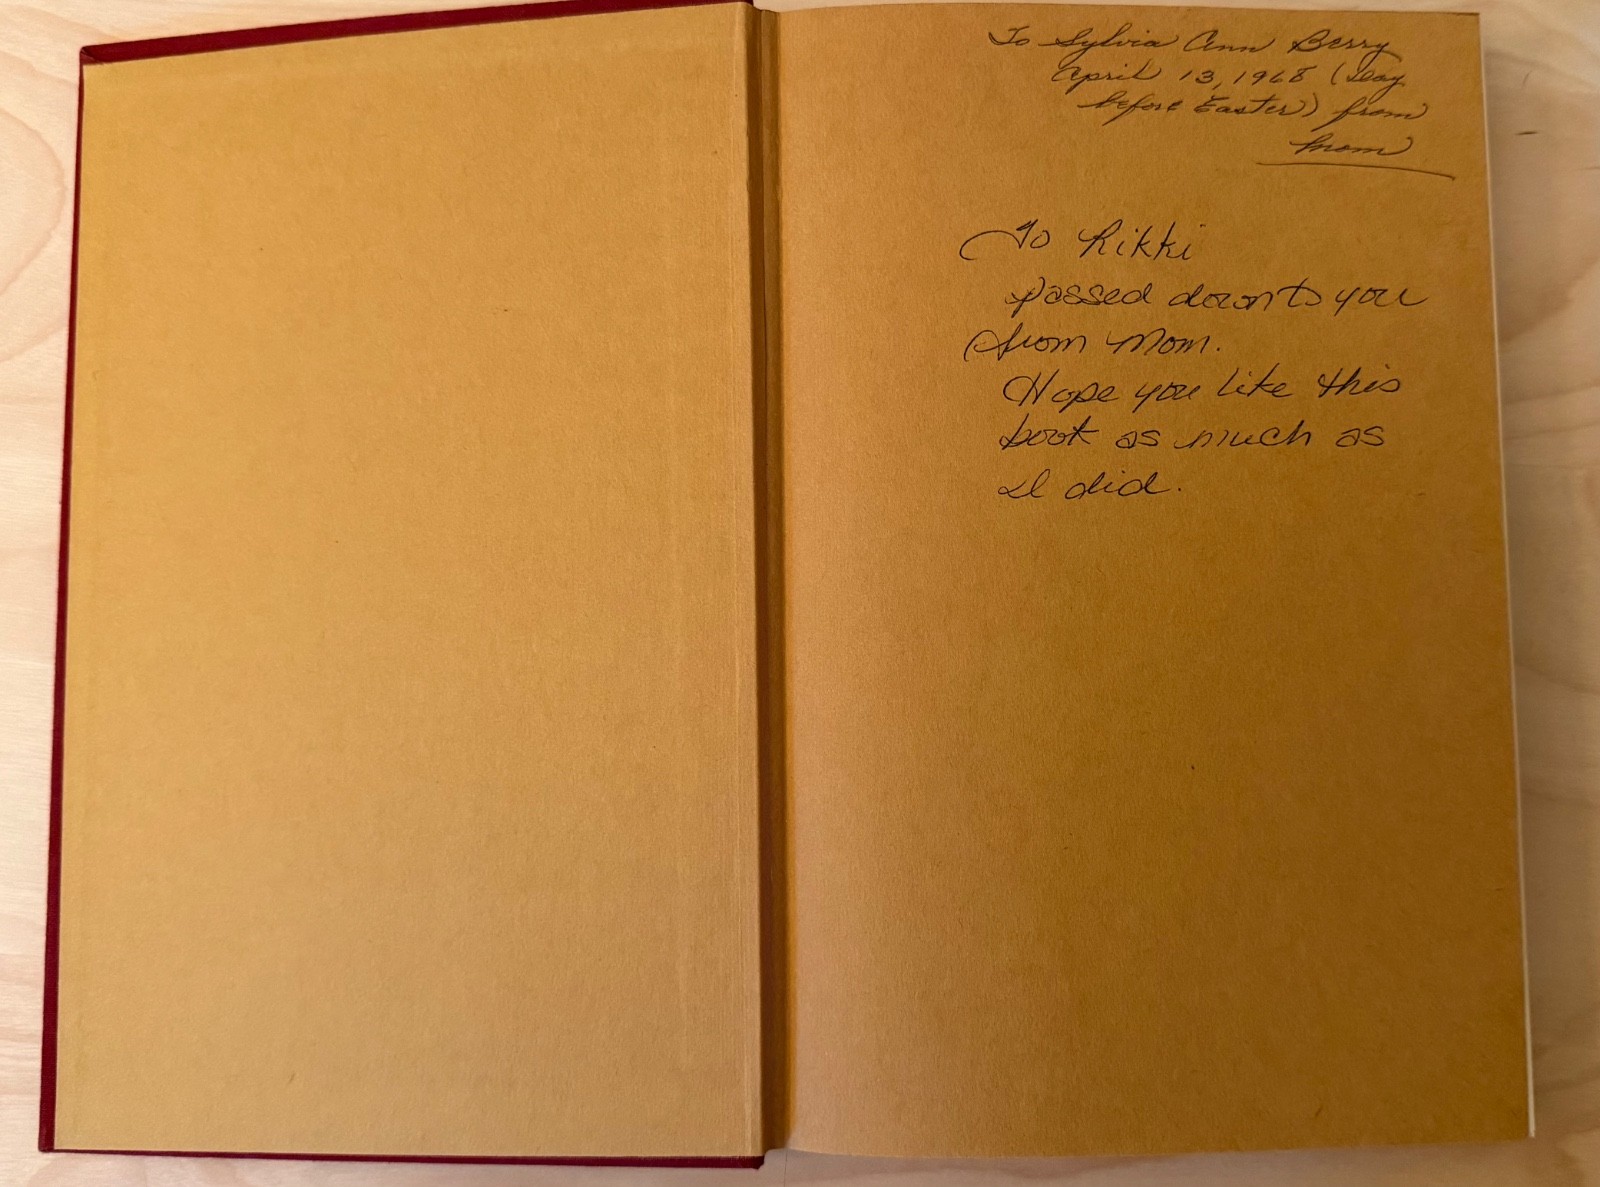 To Sylvia Ann Berry
April 13, 1968 (Day
before Easter) from
Mom
To Rikki
passed down to you
from Mom.
Hope you like this
book as much as
I did.